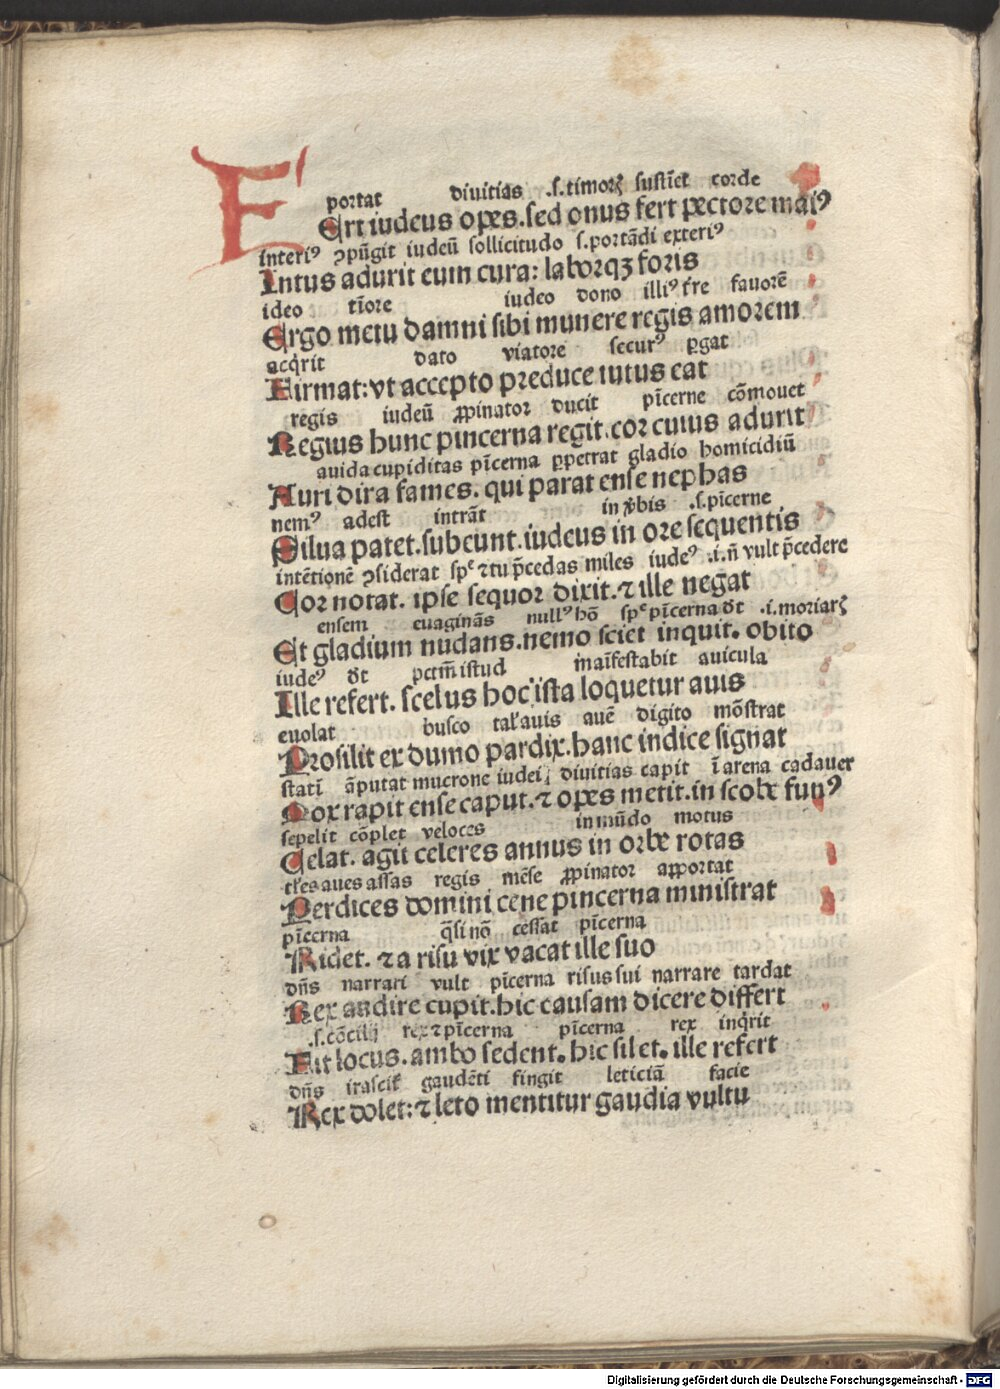 portat diuitias .s.timorē sustīet corde
FErt iudeus opes.sed onus fert pectore maiꝰ
interiꝰ ꝯpūgit iudeū sollicitudo s.portādi exteriꝰ
Intus adurit eum cura: laborqꝫ foris
ideo tīore iudeo dono illiꝰ fauorē
Ergo metu damni sibi munere regis amorem
acq̇rit dato viatore securꝰ ꝑgat
Firmat:vt accepto preduce tutus eat
regis iudeū ꝓpinator ducit pīcerne cōmouet
Regius hunc pincerna regit.cor cuius adurit
auida cupiditas pīcerna ꝑpetrat gladio homicidiū
Auri dira fames.qui parat ense nephas
nemꝰ adest intrāt in .s.pīcerne
Silua patet.subeunt.iudeus in ore sequentis
intētionē ꝯsiderat ⁊tu p̄cedas miles iudeꝰ .i.n̄ vult p̄cedere
Cor notat. ipse sequor dixit.⁊ ille negat
ensem euaginās nullꝰ hō pīcerna .i.moriar
Et gladium nudans.nemo sciet inquit. obito
iudeꝰ istud māifestabit auicula
Ille refert. scelus hoc ista loquetur auis
euolat busco auis auē digito mōstrat
Prosilit ex dumo pardix.hanc indice signat
statī āputat mucrone iudei diuitias capit ī arena cadauer
Mox rapit ense caput.⁊ opes metit.in scobe funꝰ
sepelit cōplet veloces in mūdo motus
Celat. agit celeres annus in orbe rotas
aues assas regis mēse ꝓpinator apportat
Perdices domini cene pincerna ministrat
pīcerna q̄si nō cessat pīcerna
Ridet. ⁊ a risu vix vacat ille suo
dn̄s narrari vult pīcerna risus sui narrare tardat
Rex audire cupit.hic causam dicere differt
.s.cōcilij rex⁊pīcerna pīcerna rex inq̇rit
Fit locus.ambo sedent. hic silet. ille refert
dn̄s gaudēti fingit leticiā facie
Rex dolet:⁊ leto mentitur gaudia vultu
Digitalisierung gefördert durch die Deutsche Forschungsgemeinschaft - DFG